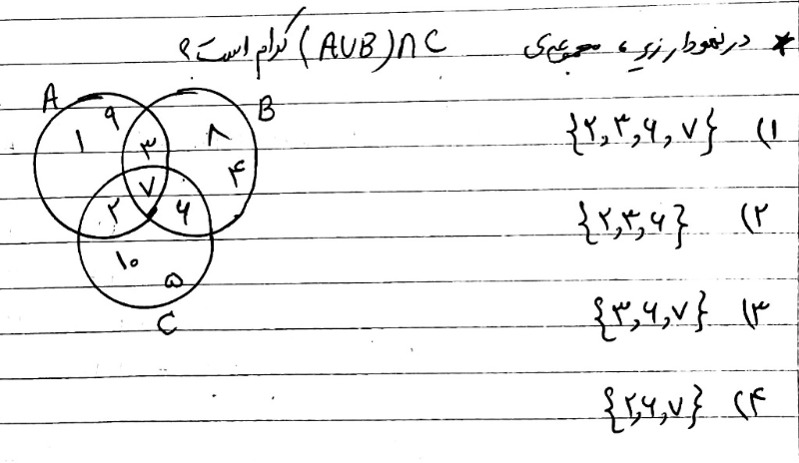 * در نمودار زیر، مجموعه‌ی (A∪B)∩C کدام است؟
A
B
۱ ۹ ۳ ۸ ۴
۷
۲ ۶
۱۰ ۵
C
۱) {۲,۳,۶,۷}
۲) {۲,۳,۶}
۳) {۳,۶,۷}
۴) {۲,۶,۷}